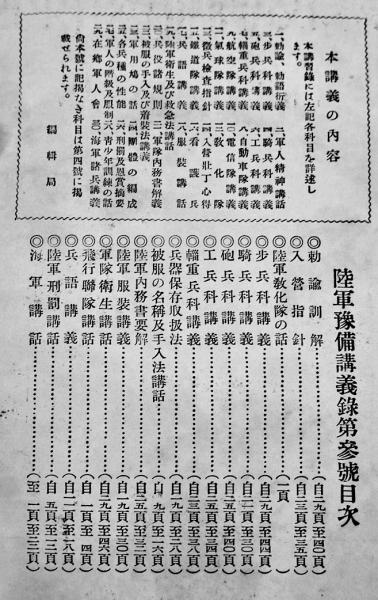 本講義の內容
本講習錄には左記各科目を詳述し
ます。
一、勅諭、勅語衍義 二、軍人精神講話
三、步兵科講義 四、騎兵科講義
五、砲兵科講義 六、工兵科講義
七、輜重兵科講義 八、自動車隊講義
九、航空隊講義 一〇、電信隊講義
二、氣球隊講義 三、敎化隊
三、徵兵檢査指針 四、入營壯丁心得
五、鐵道隊講話 六、看護兵
七、兵語講話 八、服裝講話
九、陸軍衛生及び救急法講話
二〇、兵役諸規則 三、軍隊內務書解義
三、被服の手入及び着裝法講義
三、軍用鳩の話 四、團體の編成
五、各兵種の性能 六、刑罰及恩賞摘要
七、軍人の階級及服制 八、靑少年訓練の話
元、在鄕軍人會 三〇、海軍諸兵講義
尙本號に記揭なき科目は第四號に揭
載せられます。
編輯局
陸軍豫備講義錄第參號目次
◎勅諭訓解……(自二九頁至四〇頁)
◎入營指針……(自三三頁至三五頁)
◎陸軍敎化隊の話……(一頁)
◎步兵科講義……(自二九頁至四四頁)
◎騎兵科講義……(自二一頁至三〇頁)
◎砲兵科講義……(自二五頁至四〇頁)
◎工兵科講義……(自二五頁至三四頁)
◎輜重兵科講義……(自二三頁至三八頁)
◎兵器保存取扱法……(自一九頁至二八頁)
◎被服の名稱及手入法講話……(自九頁至一六頁)
◎陸軍內務書要解……(自二五頁至三二頁)
◎陸軍服裝講義……(自一九頁至三〇頁)
◎軍隊衛生講話……(自二九頁至四六頁)
◎飛行聯隊講話……(自一頁至四頁)
◎兵語講義……(自一二頁至一八頁)
◎陸軍刑罰講話……(自五頁至一二頁)
◎海軍講話……(自一一頁至二二頁)